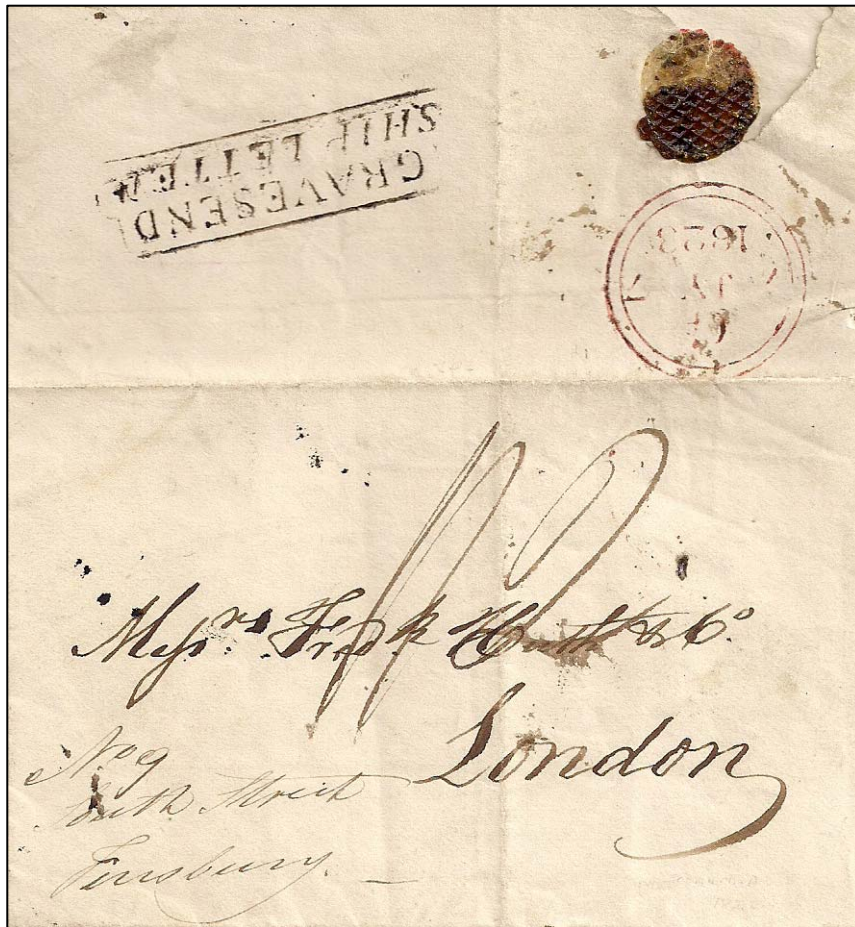 GRAVESEND
SHIP LETTER
JY
1823
Messrs Fredk Huth & Co.
London
No 9
South Street
Finsbury.